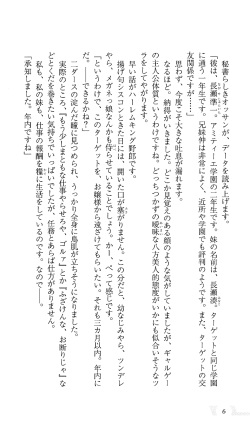 秘書らしきオッサンが、データを読み上げます。
「彼は、長瀬準一。アミティーエ学園の二年生です。妹の名前は、長瀬湊。ターゲットと同じ学園
に通う一年生です。兄妹仲は非常によく、近所や学園でも評判のようです。また、ターゲットの交
友関係ですが――」
思わず、今度こそ大きな吐息が漏れます。
なるほど、納得がいきました。どこか見覚えのある顔のような気がしていましたが、ギャルゲー
の主人公体質というわけですね。どっちつかずの曖昧な八方美人的態度がいかにも似合いそうなツ
ラをしてやがります。
早い話がハーレムキング野郎です。
揚げ句シスコンときた日には、開いた口が塞がりません。この分だと、幼なじみやら、ツンデレ
やら、メガネっ娘なんかも侍らせていることでしょう。かー、ぺって感じです。
「というわけで、このターゲットを、お嬢様から遠ざけてもらいたい。それも三カ月以内。年内に
だ。――できるかね？」
二ダースの淀んだ瞳に見つめられ、うっかり全身に鳥肌が立ちそうになりました。
実際のところ、『もう少しまともな仕事やらせろや、ゴルア』とか『ふざけんな、お断りじゃ』な
どとくだを巻きたい気持ちでいっぱいでしたが、任務とあらば仕方がありません。
私も、私の妹も、仕事の報酬を糧に生活をしているのです。なので――。
「承知しました。年内ですね」
6